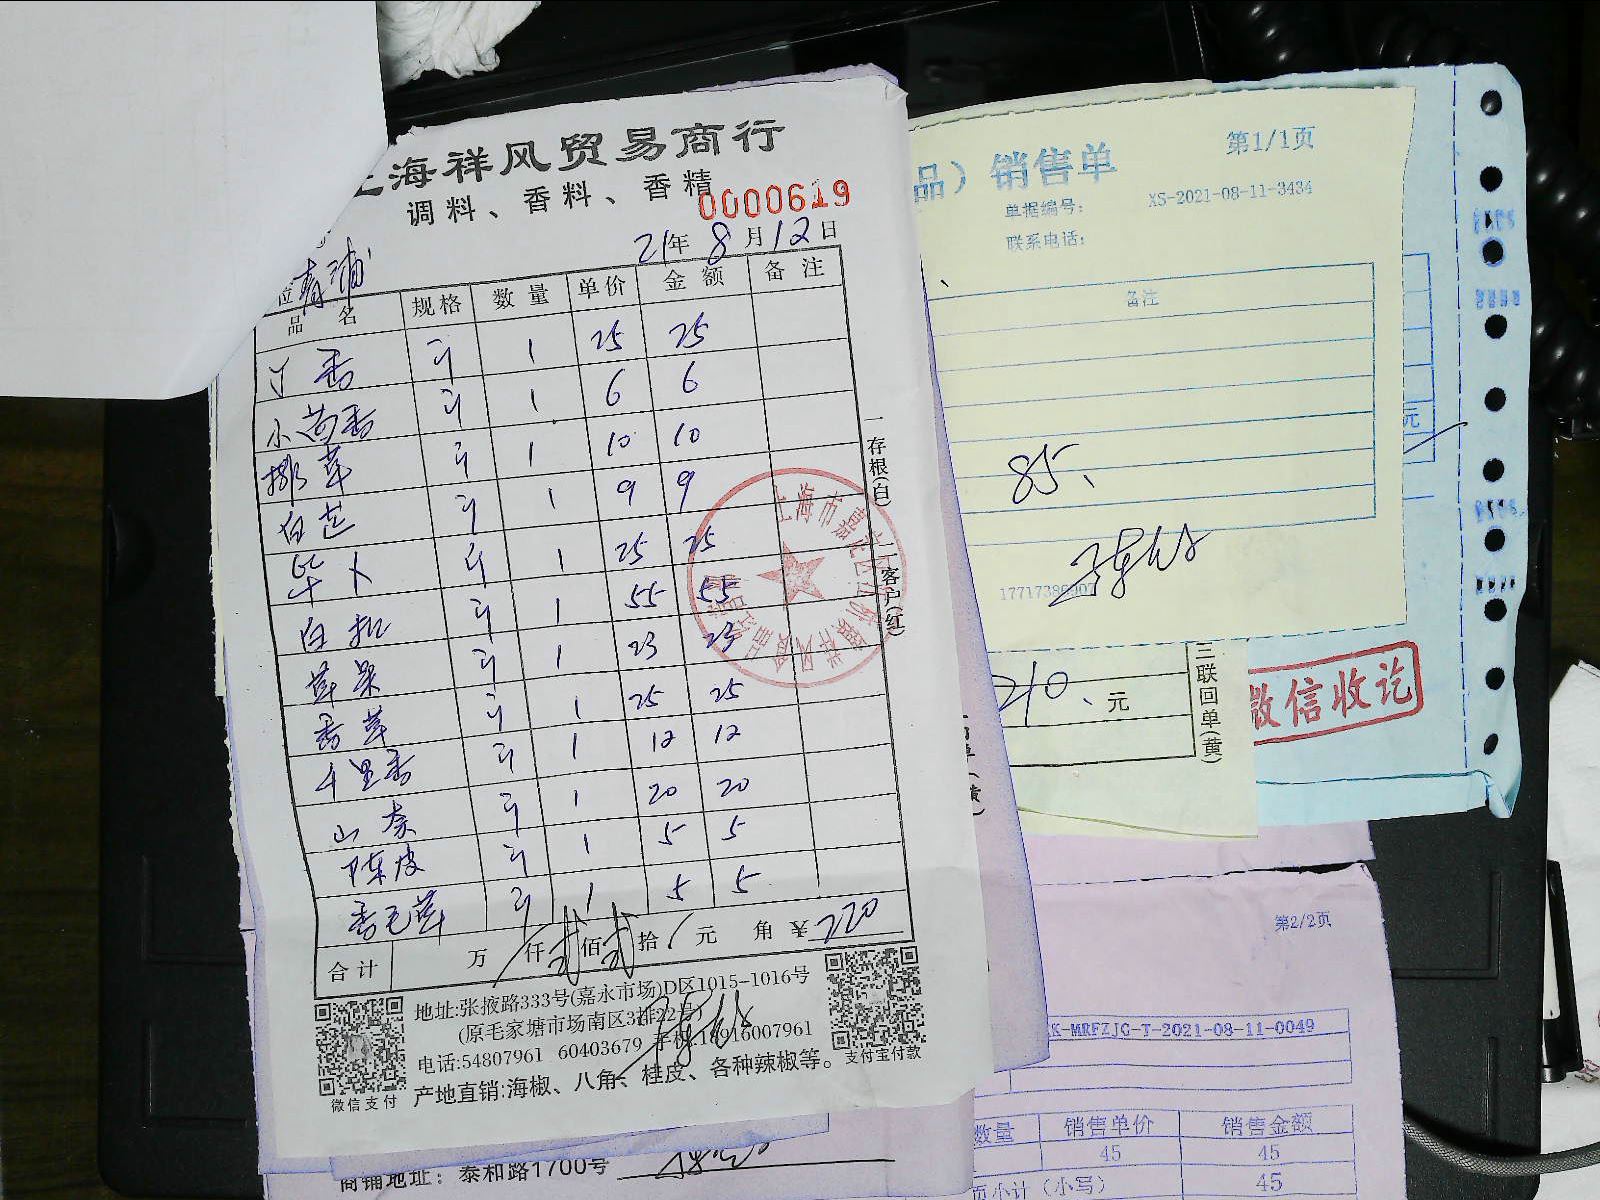 上海祥风贸易商行
调料、香料、香精
0000619
21年 8月12日
位 青浦
品名 规格 数量 单价 金额 备注
丁香 斤 1 25 25
小茴香 斤 1 6 6
斤 1 10 10
白芷 斤 1 9 9
毕卜 斤 1 25 25
白扣 斤 1 55 55
草果 斤 1 23 23
香草 斤 1 25 25
千里香 斤 1 12 12
山奈 斤 1 20 20
陈皮 斤 1 5 5
香毛草 斤 1 5 5
合计 万 仟 贰佰 贰拾 元 角 ¥ 220
一存根(白) 二客户(红)
地址:张掖路333号(嘉永市场)D区1015-1016号
(原毛家塘市场南区3排22号)
电话:54807961 60403679 手机:18916007961
产地直销:海椒、八角、桂皮、各种辣椒等。
微信支付
支付宝付款
品）销售单
第1/1页
单据编号: XS-2021-08-11-3434
联系电话:
备注
元
85、
210、元
三联回单(黄)
微信收讫
第2/2页
K-MRFZJG-T-2021-08-11-0049
数量 销售单价 销售金额
45 45
页小计（小写） 45
商铺地址: 泰和路1700号